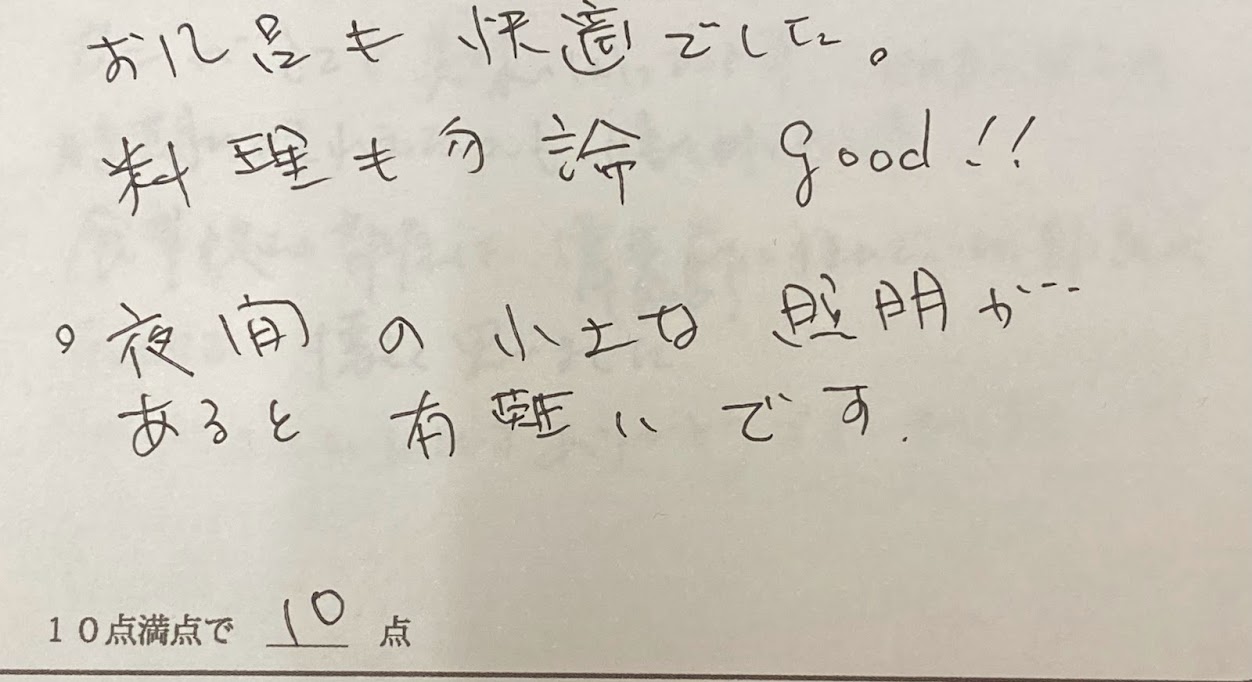 お風呂も快適でした。
料理も勿論 good!!
。夜間の小さな照明が…
あると有難いです.
10点満点で 10 点